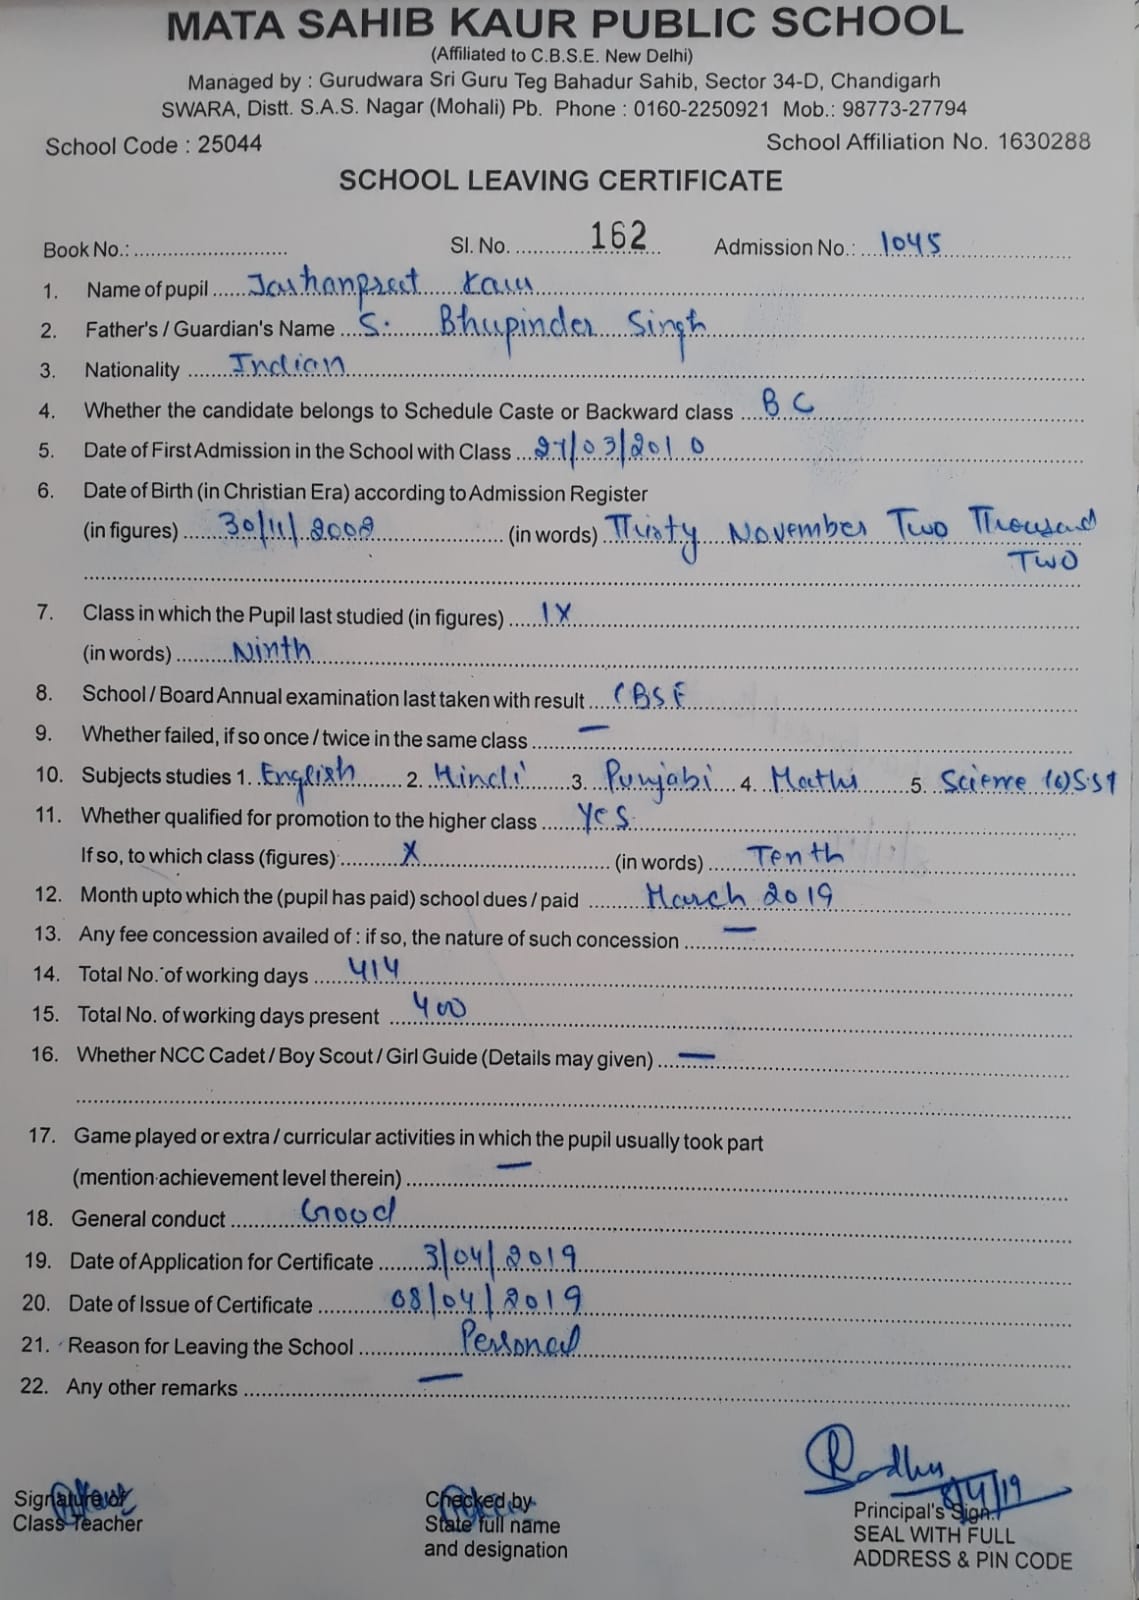 MATA SAHIB KAUR PUBLIC SCHOOL
(Affiliated to C.B.S.E. New Delhi)
Managed by : Gurudwara Sri Guru Teg Bahadur Sahib, Sector 34-D, Chandigarh
SWARA, Distt. S.A.S. Nagar (Mohali) Pb. Phone : 0160-2250921 Mob.: 98773-27794
School Code : 25044 School Affiliation No. 1630288
SCHOOL LEAVING CERTIFICATE
Book No.: Sl. No. 162 Admission No.: 1045
1. Name of pupil Jashanpreet Kaur
2. Father's / Guardian's Name S. Bhupinder Singh
3. Nationality Indian
4. Whether the candidate belongs to Schedule Caste or Backward class BC
5. Date of First Admission in the School with Class 27/03/2010
6. Date of Birth (in Christian Era) according to Admission Register
(in figures) 30/11/2002 (in words) Thirty November Two Thousand
Two
7. Class in which the Pupil last studied (in figures) IX
(in words) Ninth
8. School / Board Annual examination last taken with result CBSE
9. Whether failed, if so once / twice in the same class —
10. Subjects studies 1. English 2. Hindi 3. Punjabi 4. Maths 5. Science (6) S.St
11. Whether qualified for promotion to the higher class Yes
If so, to which class (figures) X (in words) Tenth
12. Month upto which the (pupil has paid) school dues / paid March 2019
13. Any fee concession availed of : if so, the nature of such concession —
14. Total No. of working days 414
15. Total No. of working days present 400
16. Whether NCC Cadet / Boy Scout / Girl Guide (Details may given) —
17. Game played or extra / curricular activities in which the pupil usually took part
(mention achievement level therein) —
18. General conduct Good
19. Date of Application for Certificate 3/04/2019
20. Date of Issue of Certificate 08/04/2019
21. Reason for Leaving the School Personal
22. Any other remarks —
8/4/19
Signature of Checked by Principal's Sign.
Class Teacher State full name SEAL WITH FULL
and designation ADDRESS & PIN CODE